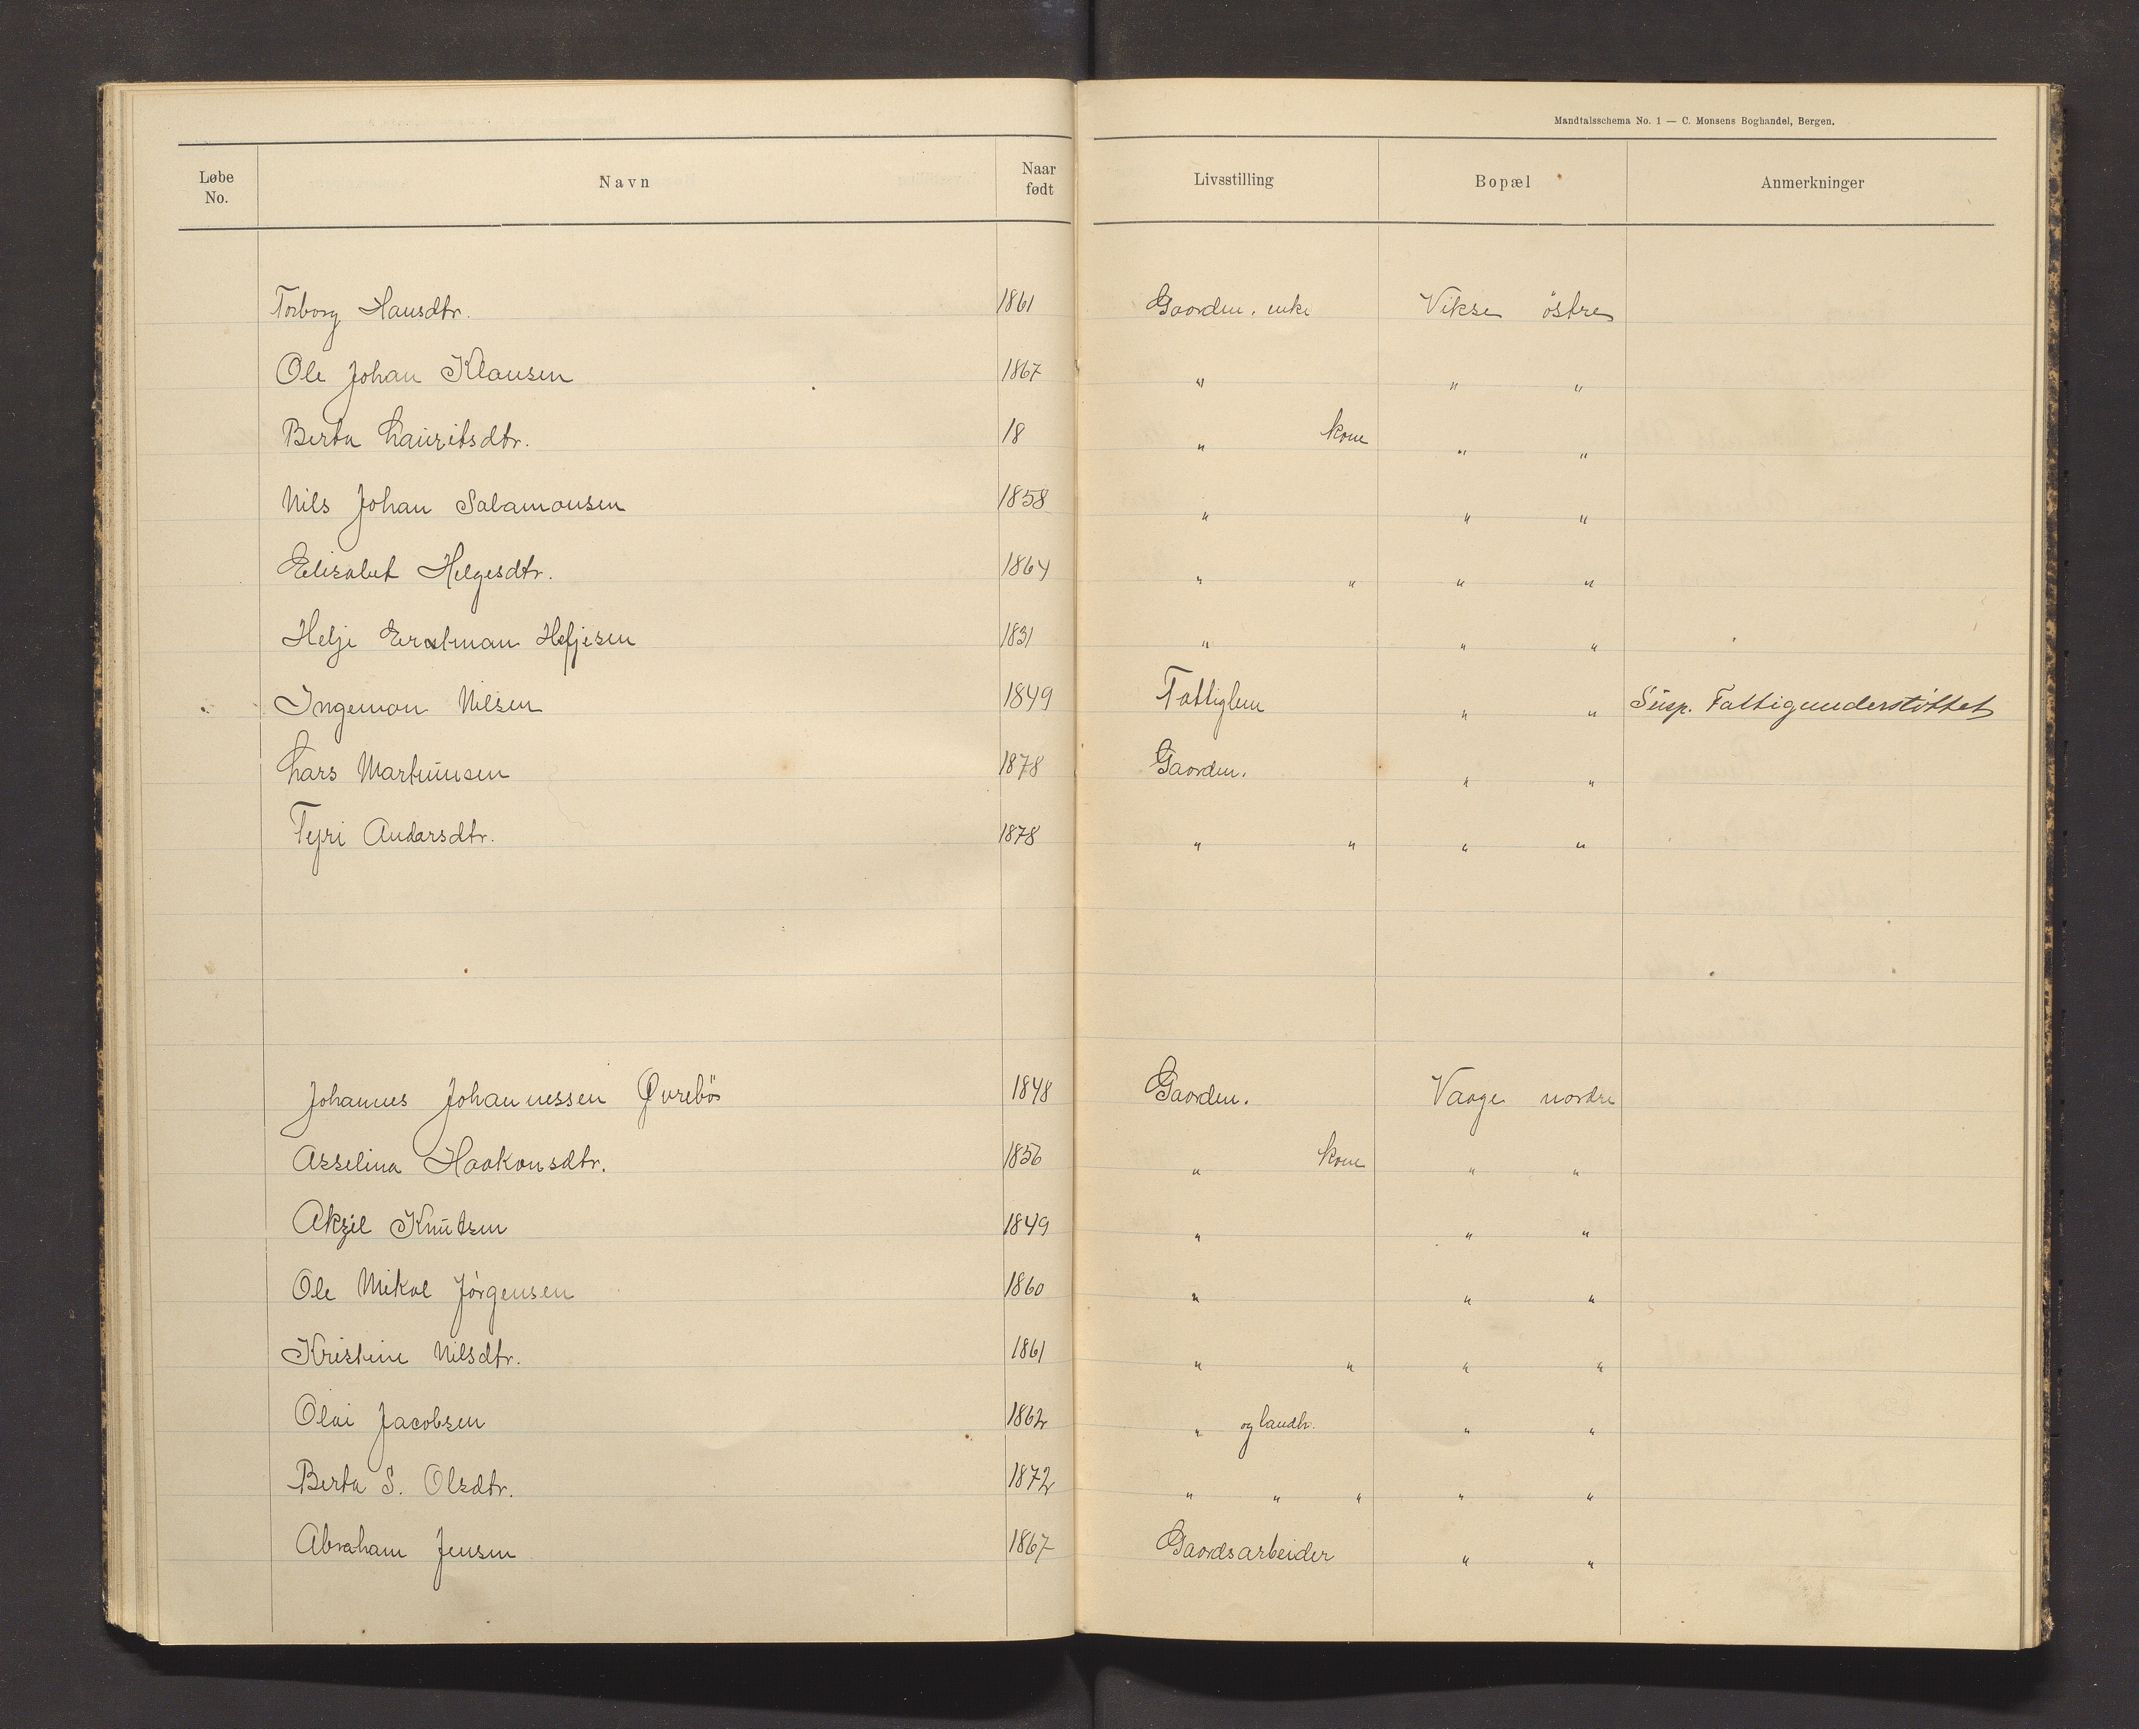 Mandtalsschema No. 1 — C. Monsens Boghandel, Bergen.
Løbe No. Navn Naar født Livsstilling Bopæl Anmerkninger
Torborg Hansdtr. 1861 Gaardm. enke Vikse östre
Ole Johan Klausen 1867 " " "
Berta Lauritsdtr. 18 " kone " "
Nils Johan Salamonsen 1858 " " "
Elisabet Helgesdtr. 1864 " " " "
Helje Erastman Heljesen 1831 " " "
Ingeman Nilsen 1849 Fattiglem " " Susp. Fattigunderstöttet
Lars Martinusen 1878 Gaardm. " "
Tyri Andarsdtr. 1878 " " " "
Johannes Johannessen Øvrebö 1848 Gaardm. Vaage nordre
Asselina Haakonsdtr. 1856 " kone " "
Aksel Knutsen 1849 " " "
Ole Mikal Jörgensen 1860 " " "
Kristine Nilsdtr. 1861 " " " "
Olai Jacobsen 1862 " og landh. " "
Berta S. Olsdtr. 1872 " " " " "
Abraham Jensen 1867 Gaardsarbeider " "